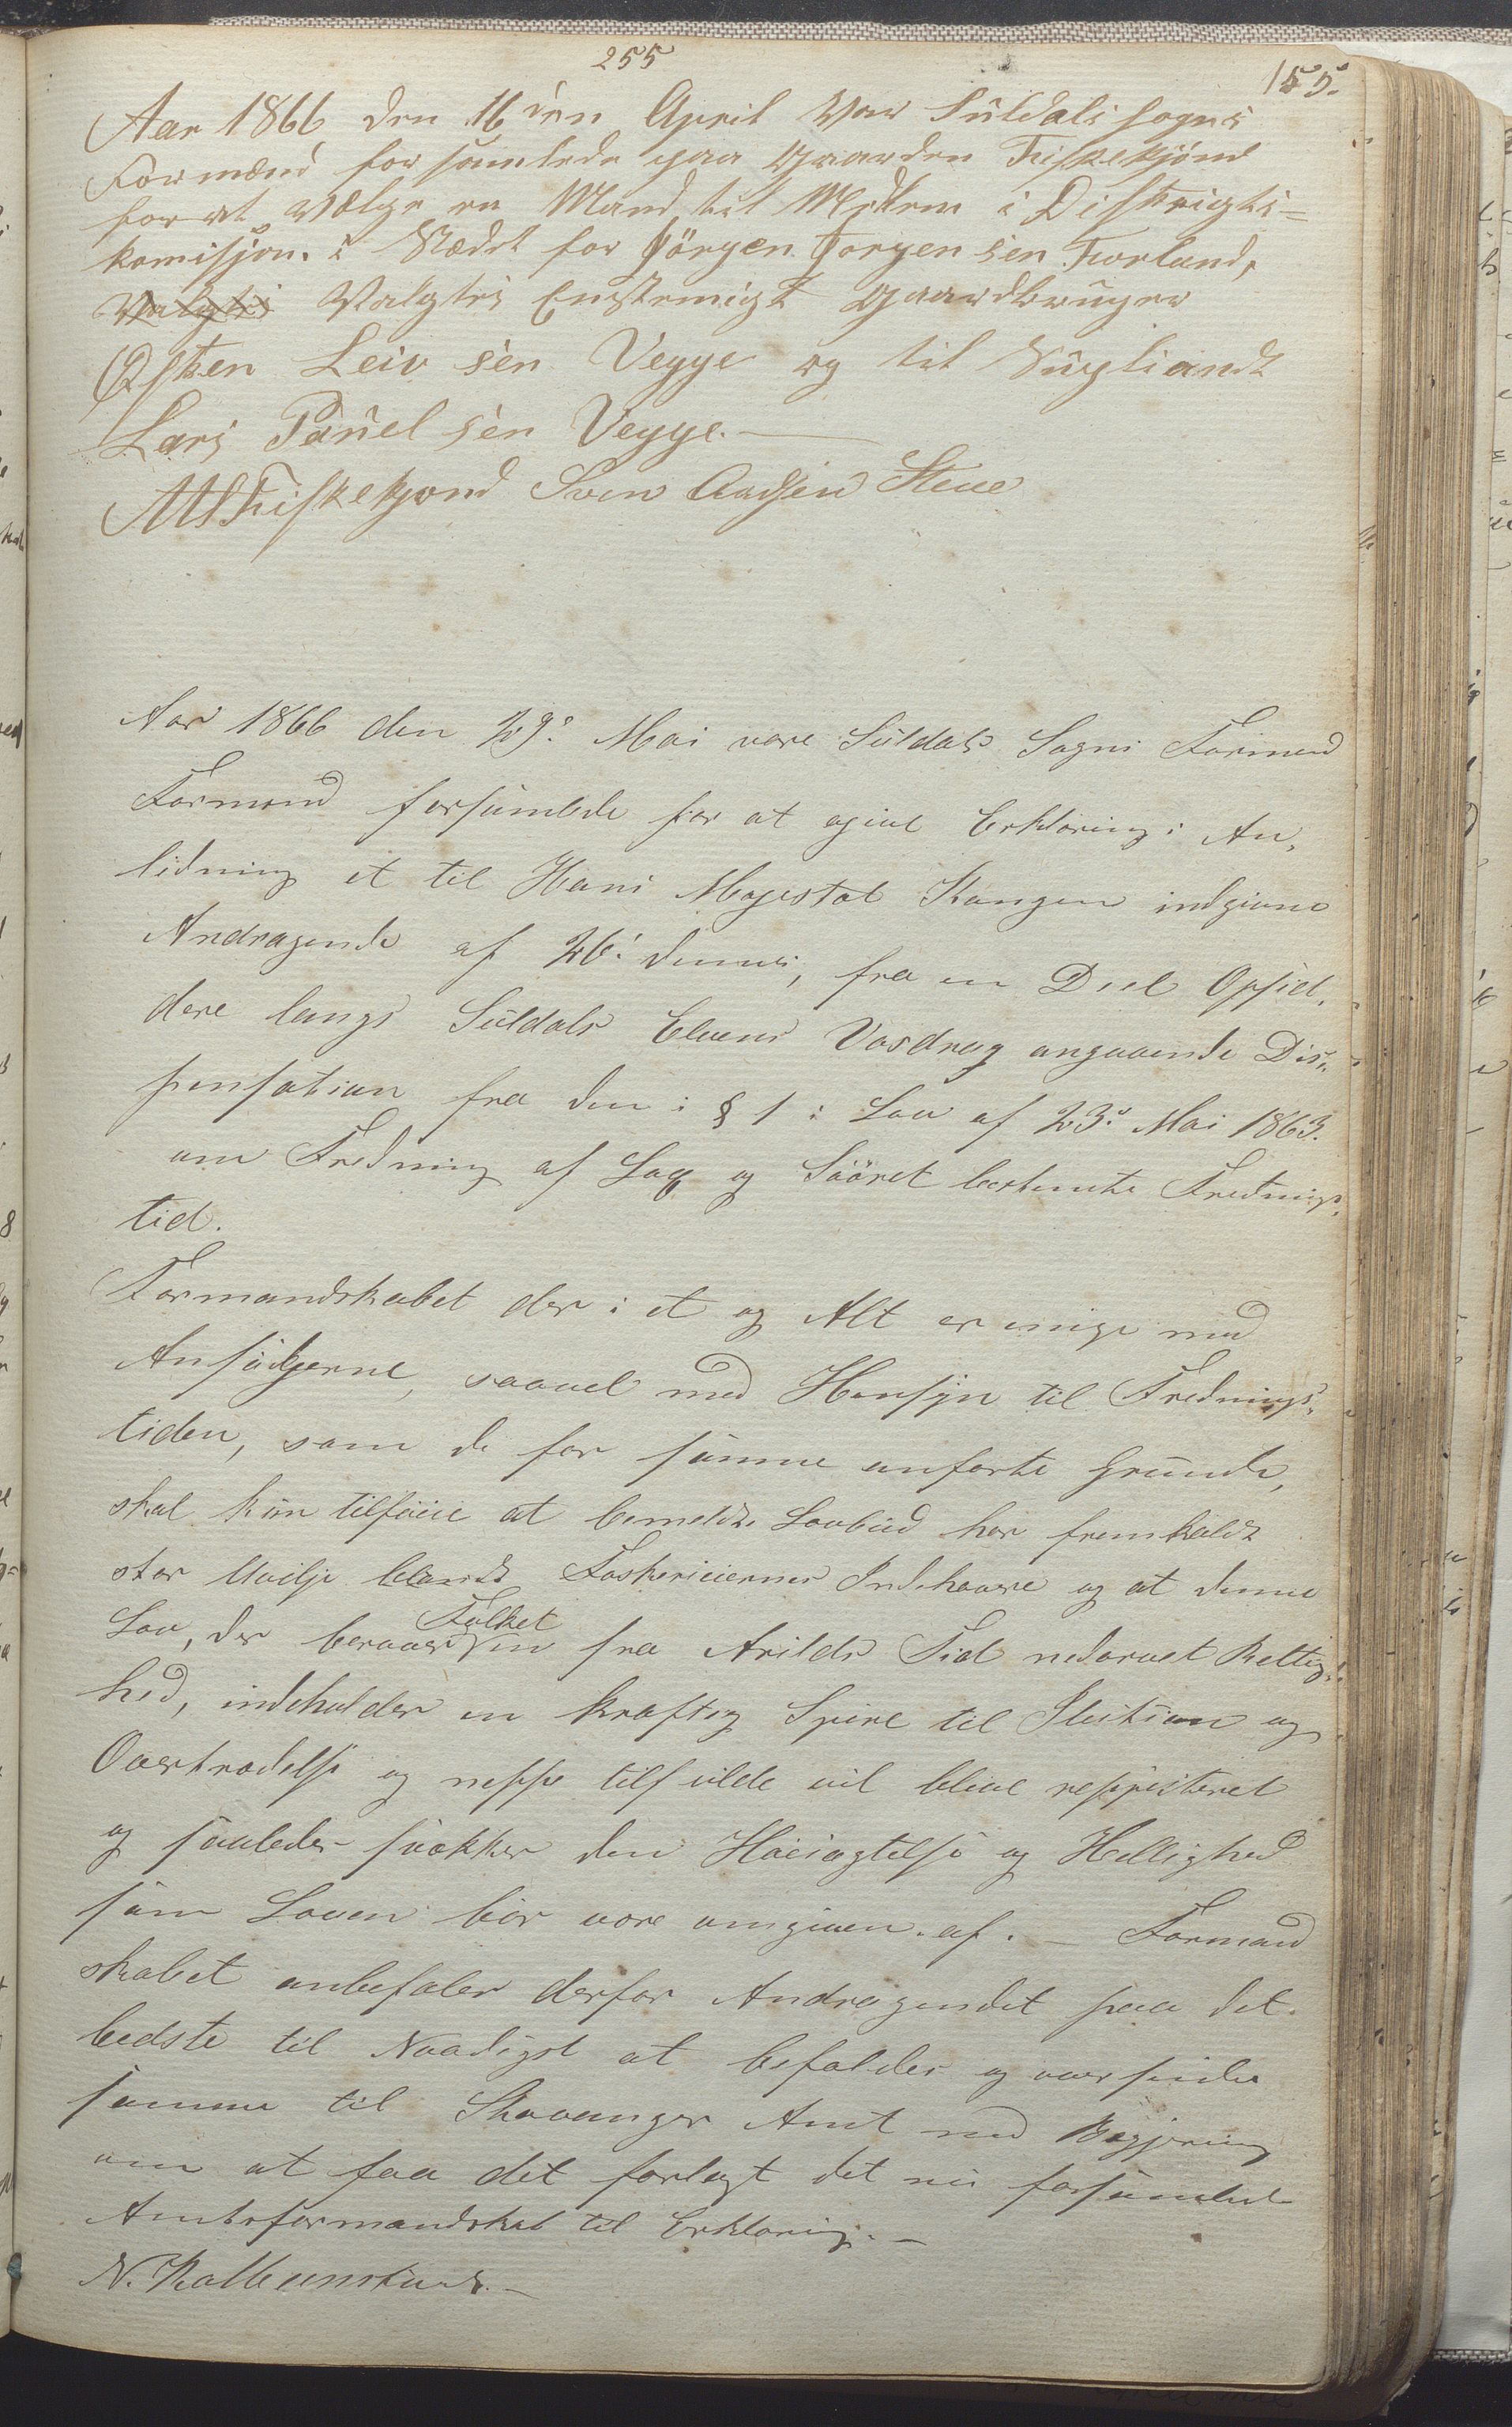 255
155.
Aar 1866 den 16den April Var Suldals sogns
Formænd forsamlede paa Gaarden Fiskekjønd
for at Vælge en Mand til Medlem i Distrigts-
komisjon. i Stædet for Jörgen Jorgensen Forland,
Valgtes Valgtes Enstemigt Gaardbruger
Østen Leivsen Vegge og til Supliandt
Lars Paùelsen Vegge.
Fiskekjønd Sven Aadsen Stene
Aar 1866 den 29de Mai vare Suldals Sogns Formænd
Formænd forsamlede for at give Erklæring i An-
lidning et til Hans Majestæt Kongen indgivne
Andragende af 26de dennes, fra en Deel Opsid-
dere langs Suldals Elvens Vasdrag angaaende Dis-
pensation fra den i § 1 i Lov af 23de Mai 1863.
om Fredning af Lax og Søöret bestemte Frednings-
tid.
Formandskabet der i et og Alt er enige med
Ansøkjerne, saavel med Hensyn til Frednings-
tiden, som de for samme anførte Grunde,
skal kun tilføie at bemeldte Lovbud har fremkaldt
stor Uvilje blandt Fiskerieiernes Indehavere og at denne
Lov, der berøver Folket en fra Arilds Tid nedarvet Rettig-
hed, indeholder en kraftig Spire til og
Overtrædelse og neppe tilfulde vil blive respecteret
og saaledes svækker den Høiagtelse og Hellighed
som Loven bør være omgiven af. - Formand
skabet anbefaler derfor Andragendet paa det
bedste til Naadigst at befaldes og oversender
samme til Stavanger Amt med Begjering
om at faa det forlagt det nu forsamlede
Amtsformandskab til Erklæring. -
N. Kolbeenstvedt. -